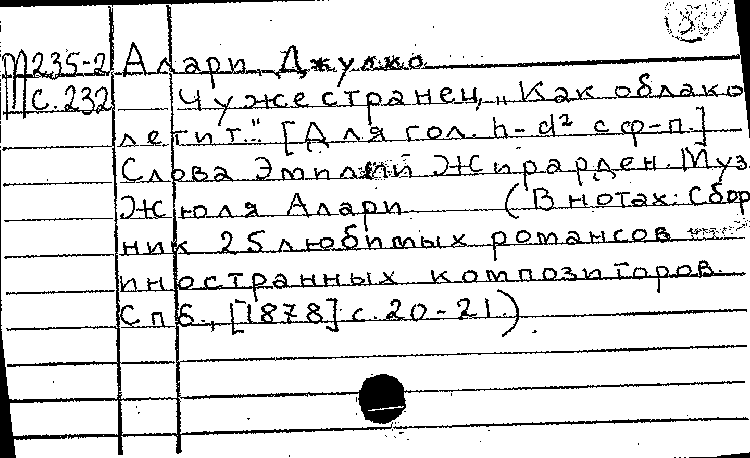 М235-2 Алари, Джулио
с. 232 Чужестранец, „Как облако
летит.." [Для гол. h-d² с ф-п.]
Слова Эмилий Жирарден. Муз
Жюля Алари (В нотах: Сбор
ник 25 любимых романсов
иностранных композиторов.
Спб., [1878] с. 20-21.).